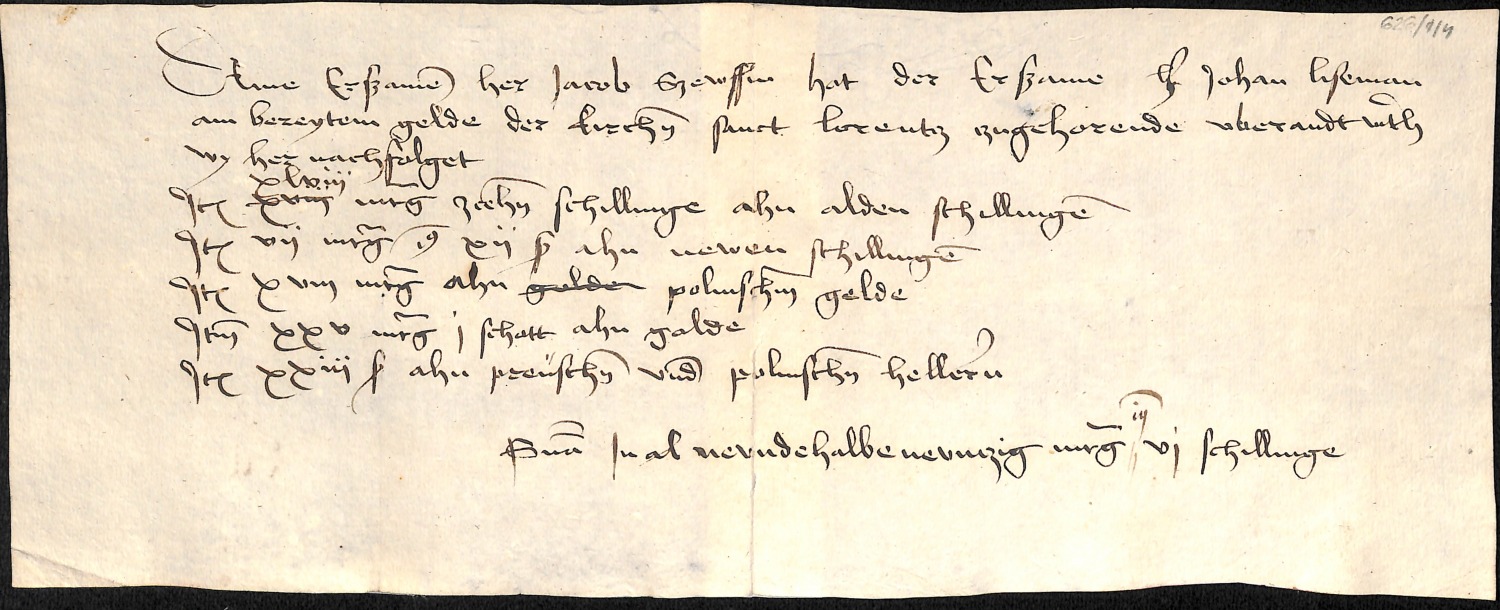 626/1/4
Deme Erszamen her Jacob Szewssen hat der Erszame h Johan liseman
am bereytem gelde der kirchn sanct lorentz zugehorende vberandtwth
wy her nachfolget
xlviii
Itm xviii mrg zcehn schillinge ahn alden schillinge
Itm vij mrg xij ß ahn newen schillinge
Itm xviii mrg ahn gelde polnischem gelde
Itm xxv mrg j schott ahn golde
Itm xxiiij ß ahn preuschn vnd polnischn hellern
iij
Suma In al newndehalbenewnczig mrg vj schillinge